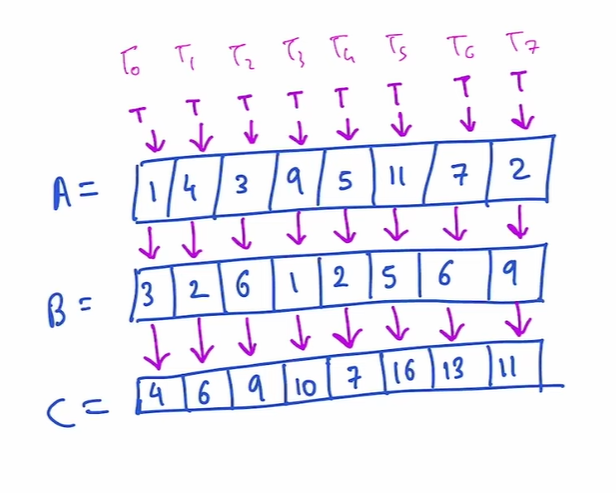 T0 T1 T2 T3 T4 T5 T6 T7
T T T T T T T T
A = 1 4 3 9 5 11 7 2
B = 3 2 6 1 2 5 6 9
C = 4 6 9 10 7 16 13 11